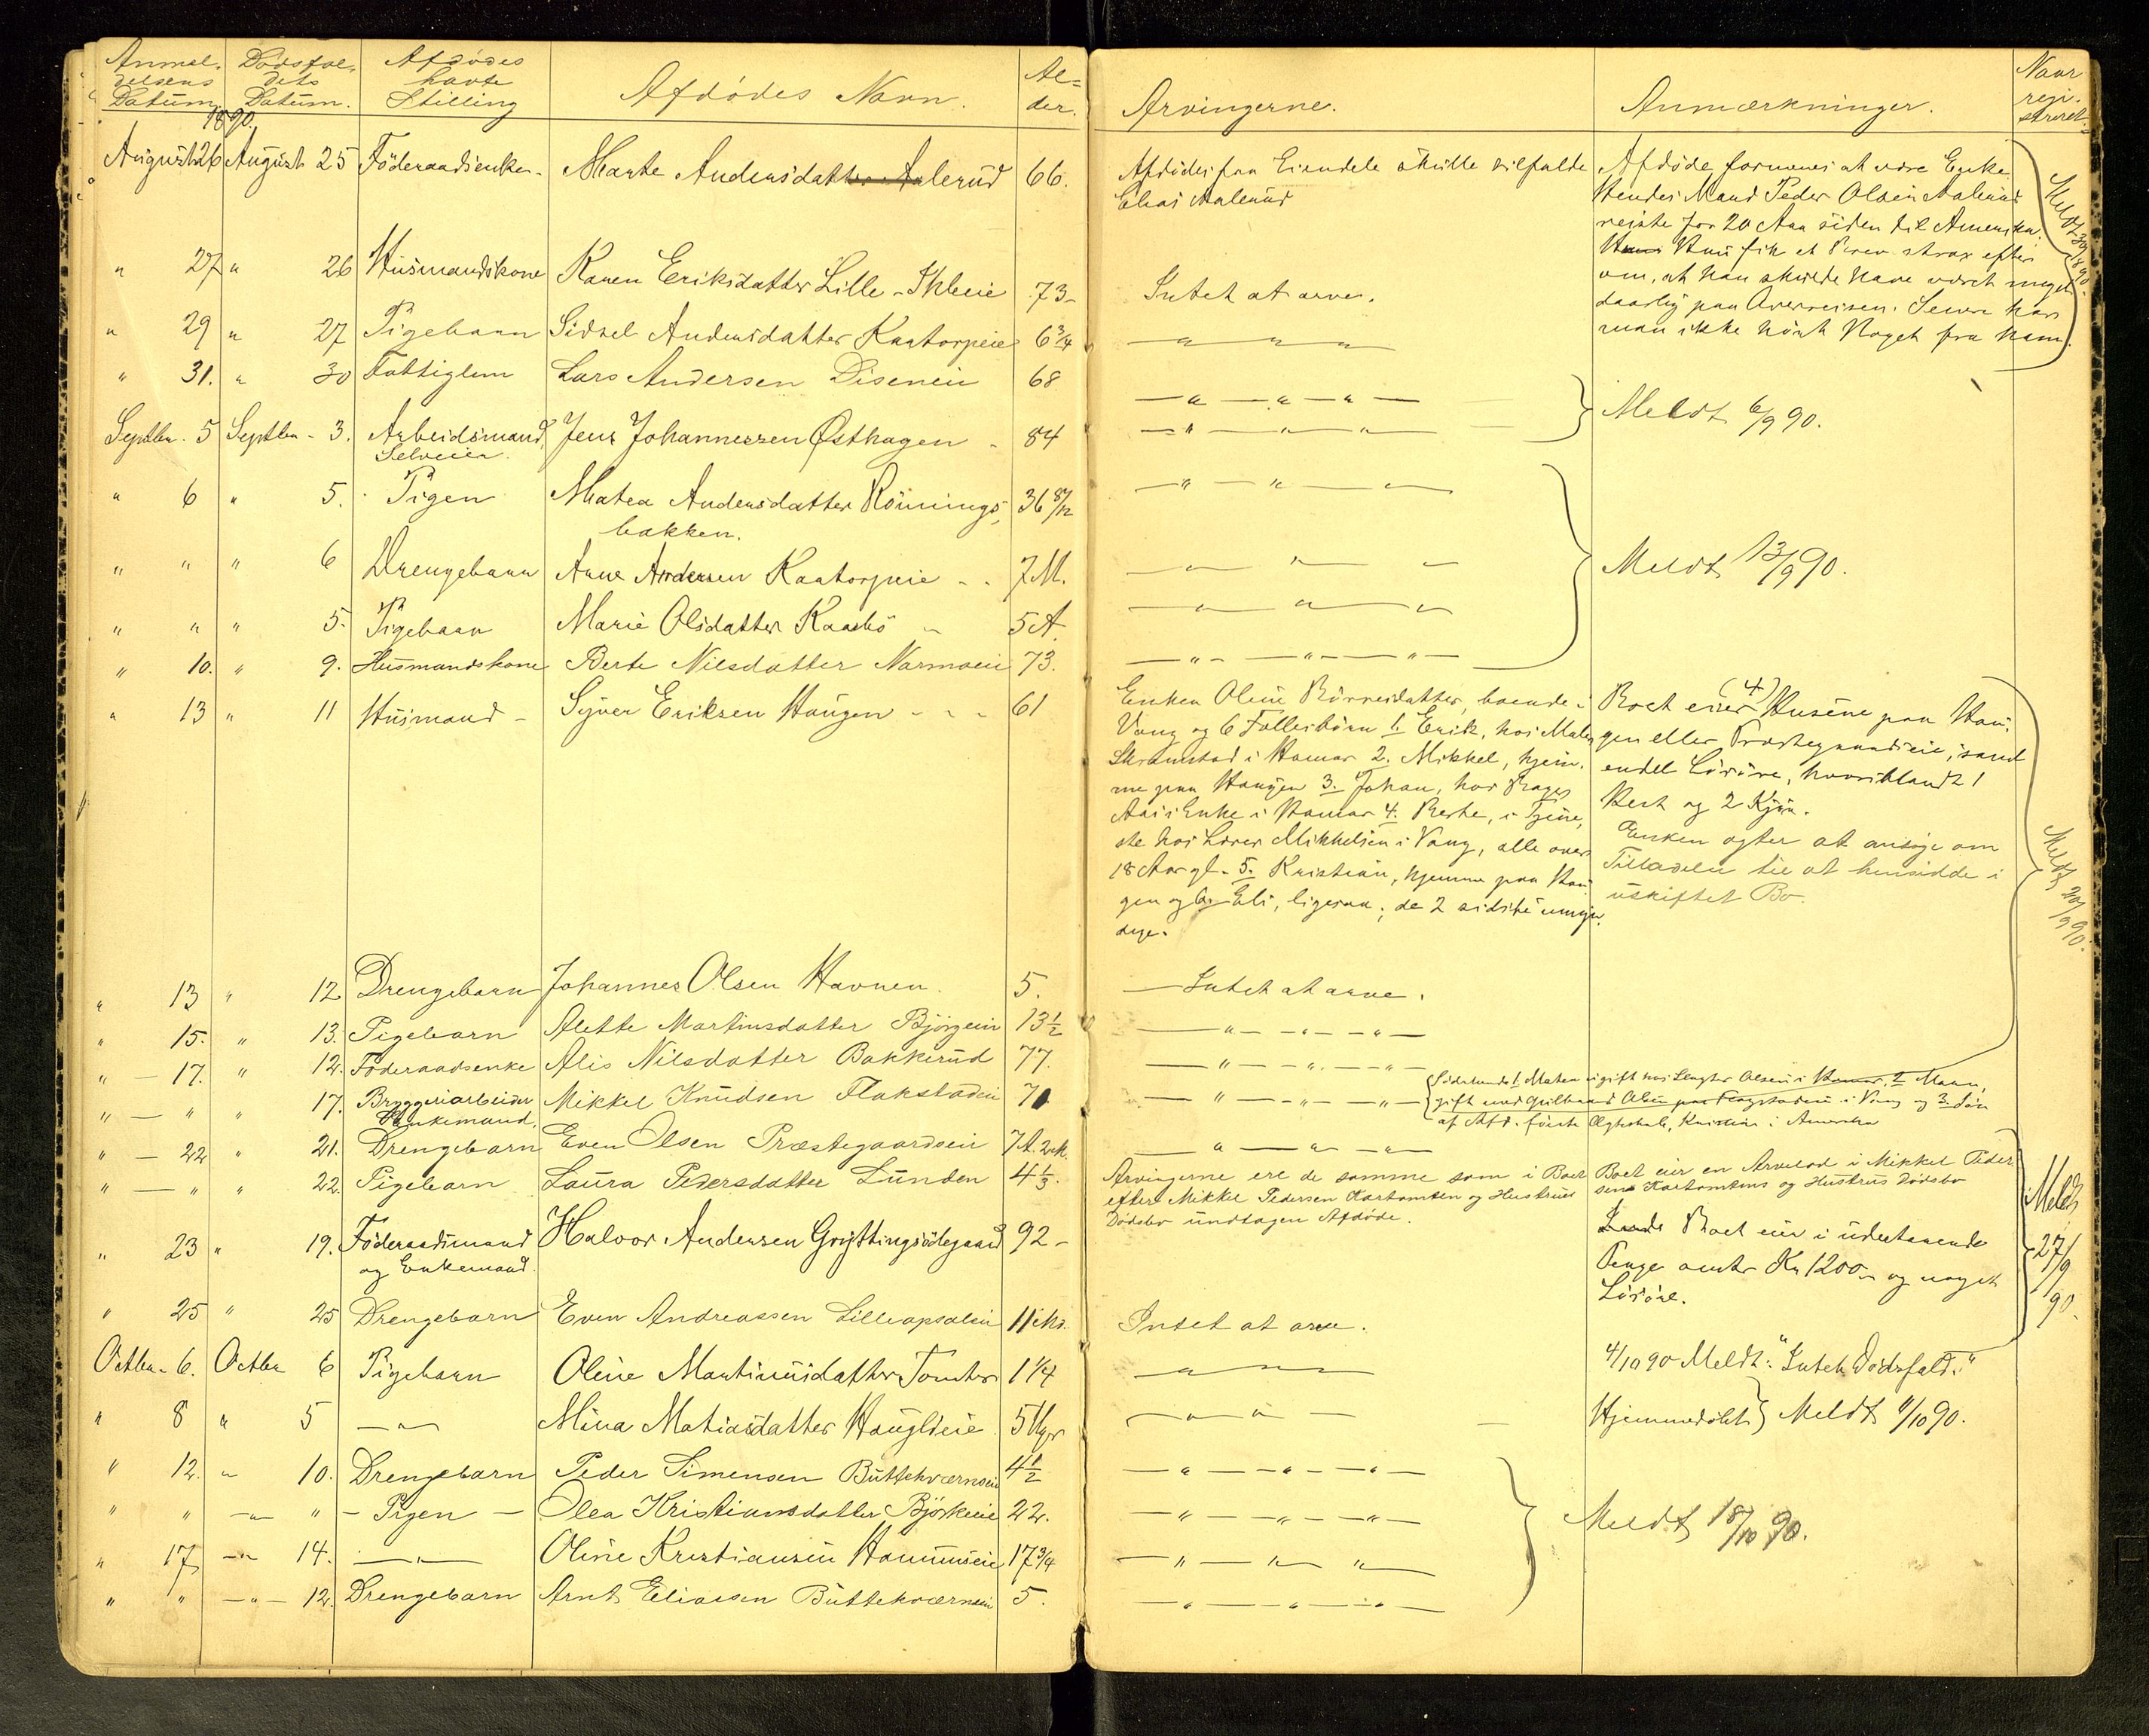 Anmel-
delsens
Datum.
Dødsfal-
dets
Datum.
Afdødes
havte
Stilling
Afdødes Navn.
Al-
der.
Arvingerne.
Anmærkninger.
Naar
regi-
streret.
1890.
August 26 August 25 Föderaadsenke - Marte Andersdatter Aalerud 66.
Afdødes faa Eiendele skulle tilfalde
Elias Aalerud
Afdøde formenes at være Enke.
Hendes Mand Peder Olsen Aalerud
reiste for 20 Aar siden til Amerika.
Hun fik et Brev strax efter
om, at han skulde have været meget
daarlig paa Overreisen. Senere har
man ikke hørt Noget fra ham.
" 27 " 26 Husmandskone Karen Eriksdatter Lille- 73-
Intet at arve.
" 29 " 27 Pigebarn Sidsel Andersdatter Kaatorpeie 6 3/4
— " " " —
" 31. " 30 Fattiglem Lars Andersen Diseneie 68
— " — " — " —
Meldt 6/9 90.
Septbr. 5 Septbr - 3. Arbeidsmand, Jens Johannessen Østhagen - 84
Selveier.
— " — " — " —
" 6 " 5. Pigen Matea Andersdatter Rönnings- 36 8/12
bakken.
— " — " — " —
" " " 6 Drengebarn Arne Andersen Kaatorpeie - - 7 M.
— " — " — " —
Meldt 13/9 90.
" " " 5. Pigebarn Marie Olsdatter Kaasbö " 5 A.
— " — " — " —
" 10. " 9. Husmandskone Berte Nilsdatter Narmoeie 73.
— " — " — " —
" 13 " 11 Husmand - Syver Eriksen Haugen - - - 61
Enken Oline Börresdatter, boende i
Vang og 6 Fællesbörn 1. Erik, hos
Skramstad i Hamar 2. Mikkel, hjem-
me paa Haugen 3. Johan, hos Bager
Enke i Hamar 4. Berte, i Tjene-
ste hos Lærer Mikkelsen i Vang, alle over
18 Aar gl. 5. Kristian, hjemme paa Hau-
gen og 6. Eli, ligesaa; de 2 sidste umyn-
dige.
Boet eier (4) Husene paa Hau-
gen eller Præstegaardseie, samt
endel Lösöre, hvoriblandt 1
Hest og 2 Kjör.
Enken agter at ansøge om
Tilladelse til at hensidde i
uskiftet Bo.
Meldt 20/9 90.
" 13 " 12 Drengebarn Johannes Olsen Havnen. 5.
— Intet at arve.
" 15. " 13. Pigebarn Alette Martinsdatter Björgeeie 13 1/2
— " — " — " —
" — 17. " 12. Föderaadsenke Alis Nilsdatter Bakkerud 77.
— " — " — " —
" — " " 17. Bryggeriarbeider Mikkel Knudsen Flakstadeie 71
Enkemand.
— " — " — " —
Södskende 1. Matea ugift hos Slagter Olsen i Hamar, 2 Maren,
gift med Olsen paa Flagstadeie i Vang og 3. Søn
af Afd. første Ægteskab, Kristian i Amerika
" — 22 " 21. Drengebarn Even Olsen Præstegaardseie 7 A. 2 M.
— " — " — " —
" — " " 22. Pigebarn Laura Pedersdatter Lunden 4 1/3.
Arvingerne ere de samme som i Boet
efter Mikkel Pedersen Kartomten og Hustrues
Dödsbo undtagen Afdöde.
Boet eier en Arvelod i Mikkel Peder-
sens Kartomtens og Hustrus Dödsbo
" 23 " 19. Föderaadsmand Halvor Andersen Gryttingsödegaard 92 -
og Enkemand.
Boet eier i udestaaende
Penge omtr Kr 1200 - og noget
Lösöre.
Meldt
27/9
90.
" 25 " 25 Drengebarn Even Andreassen Lilleopsaleie 11 M.
Intet at arve.
4/10 90 Meldt: "Intet Dödsfald."
Octbr - 6. Octbr 6 Pigebarn Oline Martiniusdatter Tomter 1 1/4
— " " " —
" 8 " 5 — " — Mina Matiasdatter Hauglieie 5 Uger
— " " —
Hjemmedöbt } Meldt 11/10 90.
" 12. " 10. Drengebarn Peder Simensen Buttekværneie 4 1/2
— " — " — " —
" " — " — " - Pigen - Olea Kristiansdatter Björkeeie 22.
— " — " — " —
Meldt 18/10 90.
" 17 — " 14. — " — Oline Kristiansen 17 3/4
— " — " " —
" " — " — 12. Drengebarn Arnt Eliassen Buttekværneie 5.
— " — " — " —